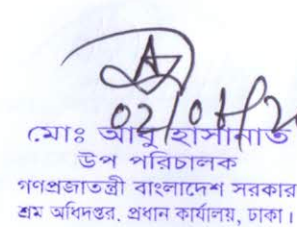 02/0
মোঃ আবু হাসানাত
উপ পরিচালক
গণপ্রজাতন্ত্রী বাংলাদেশ সরকার
শ্রম অধিদপ্তর, প্রধান কার্যালয়, ঢাকা।